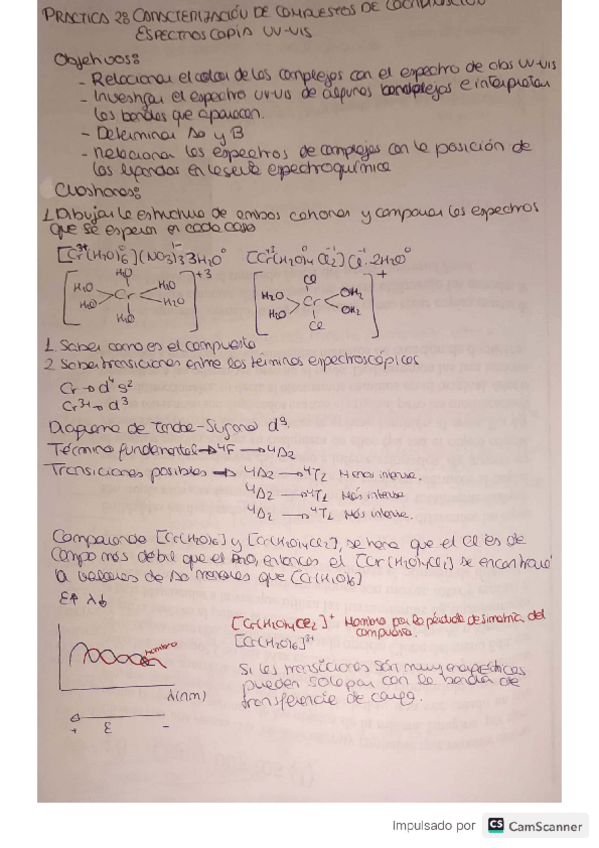 PRACTICA 28 CARACTERIZACIÓN DE COMPUESTOS DE COORDINACIÓN
ESPECTROSCOPÍA UV-VIS
Objetivos:
- Relacionar el color de los complejos con el espectro de abs UV-VIS
- Investigar el espectro UV-VIS de algunos complejos e interpretar
las bandas que aparecen.
- Determinar Δo y B
- Relacionar los espectros de complejos con la posición de
los ligandos en la serie espectroquímica
Cuestiones:
1. Dibujar la estructura de ambos cationes y comparar los espectros
que se esperan en cada caso
[Cr(H2O)6](NO3)3 3H2O [Cr(H2O)4Cl2]Cl·2H2O
H2O Cl
H2O H2O H2O OH2
Cr Cr
H2O H2O H2O OH2
H2O Cl
+3 +
1 Saber como es el compuesto
2 Saber transiciones entre los términos espectroscópicos
Cr → d4 s2
Cr3+ → d3
Diagrama de Tanabe-Sugano d3.
Término fundamental → 4F → 4A2
Transiciones posibles → 4A2 → 4T2 Menos intensa.
4A2 → 4T1 Más intensa
4A2 → 4T1 Más intensa.
Comparando [Cr(H2O)6] y [Cr(H2O)4Cl2], se que el Cl es de
campo más débil que el H2O, entonces el [Cr(H2O)4Cl2] se encontrará
a valores de Δo menores que [Cr(H2O)6]
E↑ λ↓
[Cr(H2O)4Cl2]+ Hombro por la pérdida de simetría del
compuesto.
[Cr(H2O)6]3+
hombro
Si las transiciones son muy energéticas
pueden solapar con la banda de
transferencia de carga.
λ(nm)
+ E -
Impulsado por CS CamScanner